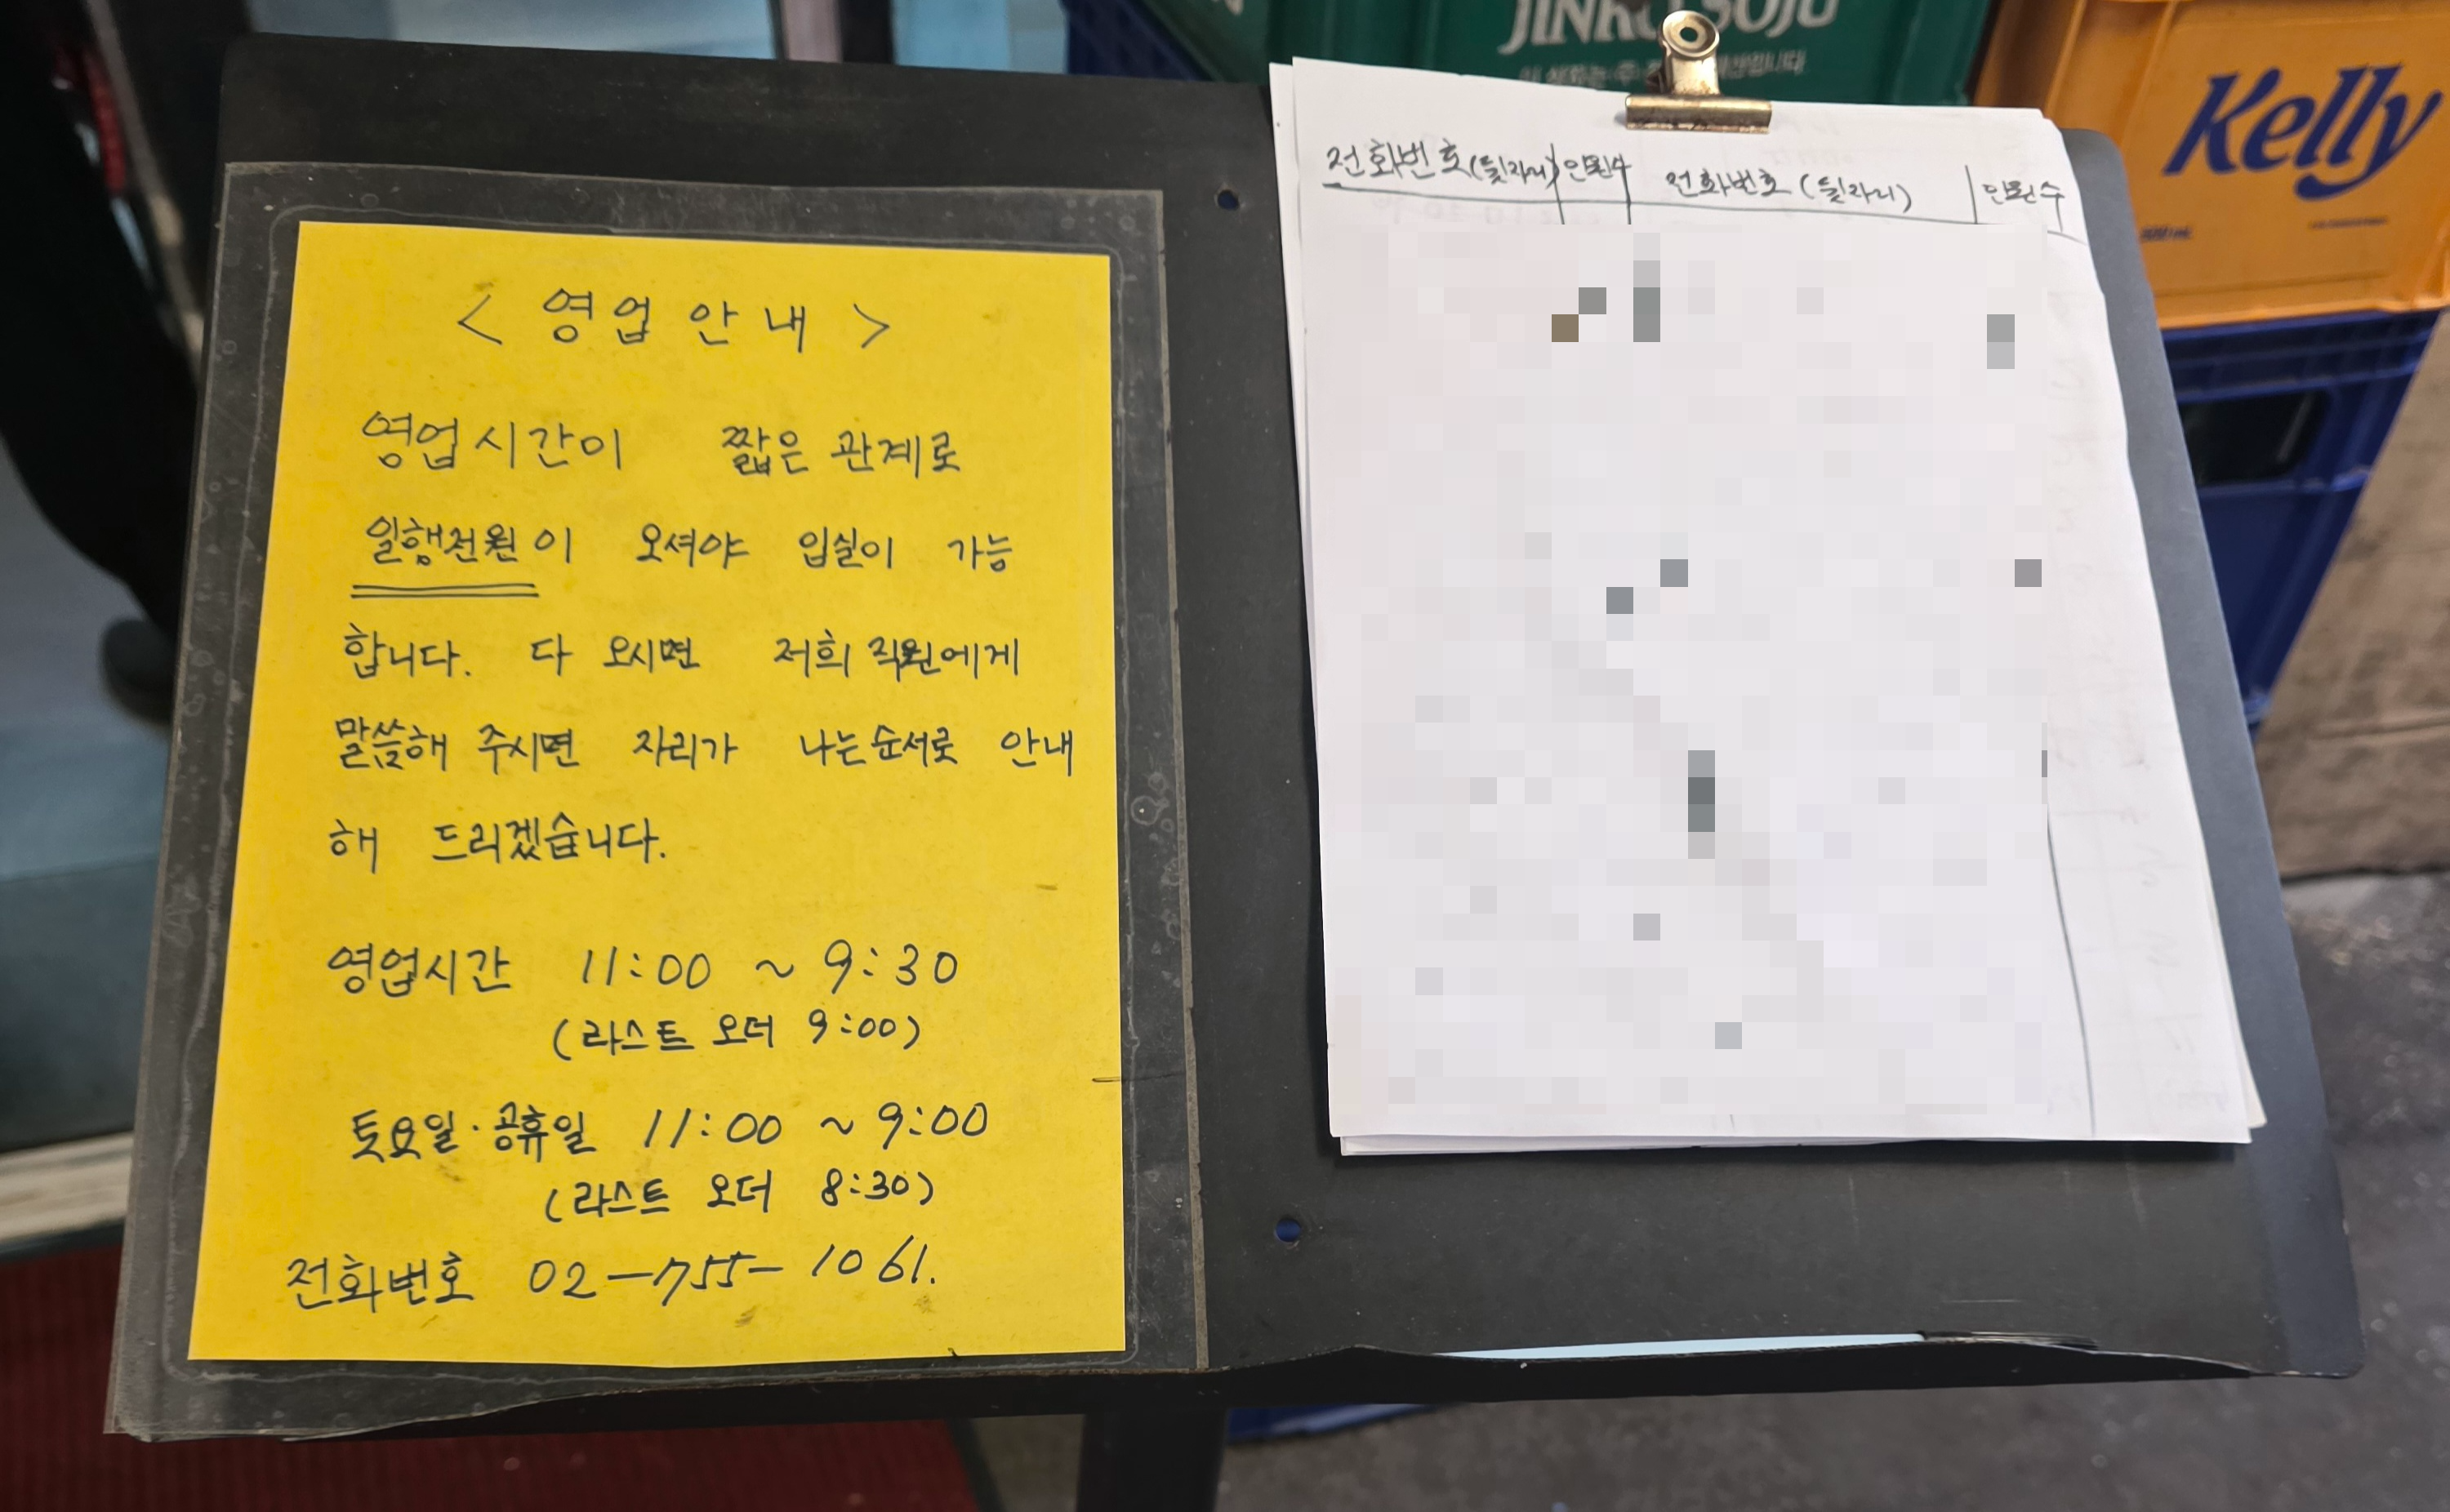 < 영업 안내 >
영업시간이 짧은 관계로
일행전원이 오셔야 입실이 가능
합니다. 다 오시면 저희 직원에게
말씀해 주시면 자리가 나는 순서로 안내
해 드리겠습니다.
영업시간 11:00 ~ 9:30
(라스트 오더 9:00)
토요일·공휴일 11:00 ~ 9:00
(라스트 오더 8:30)
전화번호 02-755-1061.
전화번호(뒷자리) 인원수 전화번호 (뒷자리) 인원수
JINRO SOJU
Kelly